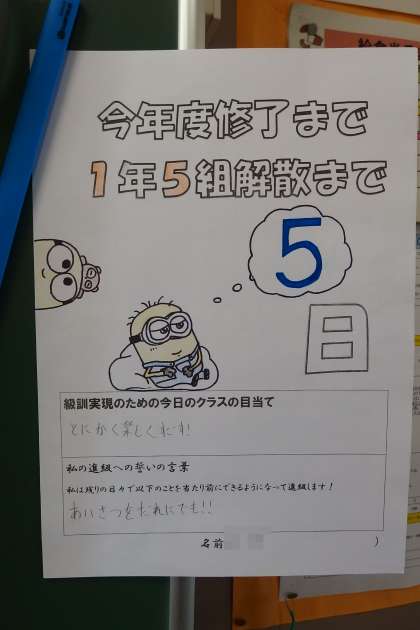 今年度修了まで
1年5組解散まで
5
日
級訓実現のための今日のクラスの目当て
とにかく楽しくすごす!
私の進級への誓いの言葉
私は残りの日々で以下のことを当たり前にできるようになって進級します!
あいさつをだれにでも!!
名前 )